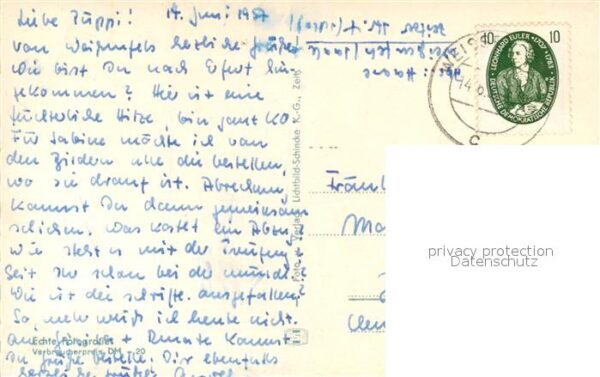 Liebe Puppi! 14. Juni 1957
von Weißenfels herzliche Grüße
Wie bist Du nach Erfurt hin-
gekommen? Hier ist eine
fürchterliche Hitze, bin ganz KO
Für Sabine möchte ich von
den Bildern alle die bestellen,
wo sie drauf ist. Abrechnen
kannst Du dann gemeinsam
schicken. Was kostet ein Abzug
wie steht es mit der Prüfung?
Seid Ihr schon bei der mündl.?
Wie ist die schriftl. ausgefallen?
So, mehr weiß ich heute nicht.
+ Renate kannst
Du Grüße bestellen. Dir ebenfalls
herzliche Grüße
Weißenfels/Saale
bei: Haase
Foto u. Verlag Lichtbild-Schincke K.-G., Zeitz
Echte Fotografie
Verbraucherpreis DM -.20
WEISS
14.6.
c
10 LEONHARD EULER • 1707-1783 10
DEUTSCHE DEMOKRATISCHE REPUBLIK
Fräul
privacy protection
Datenschutz